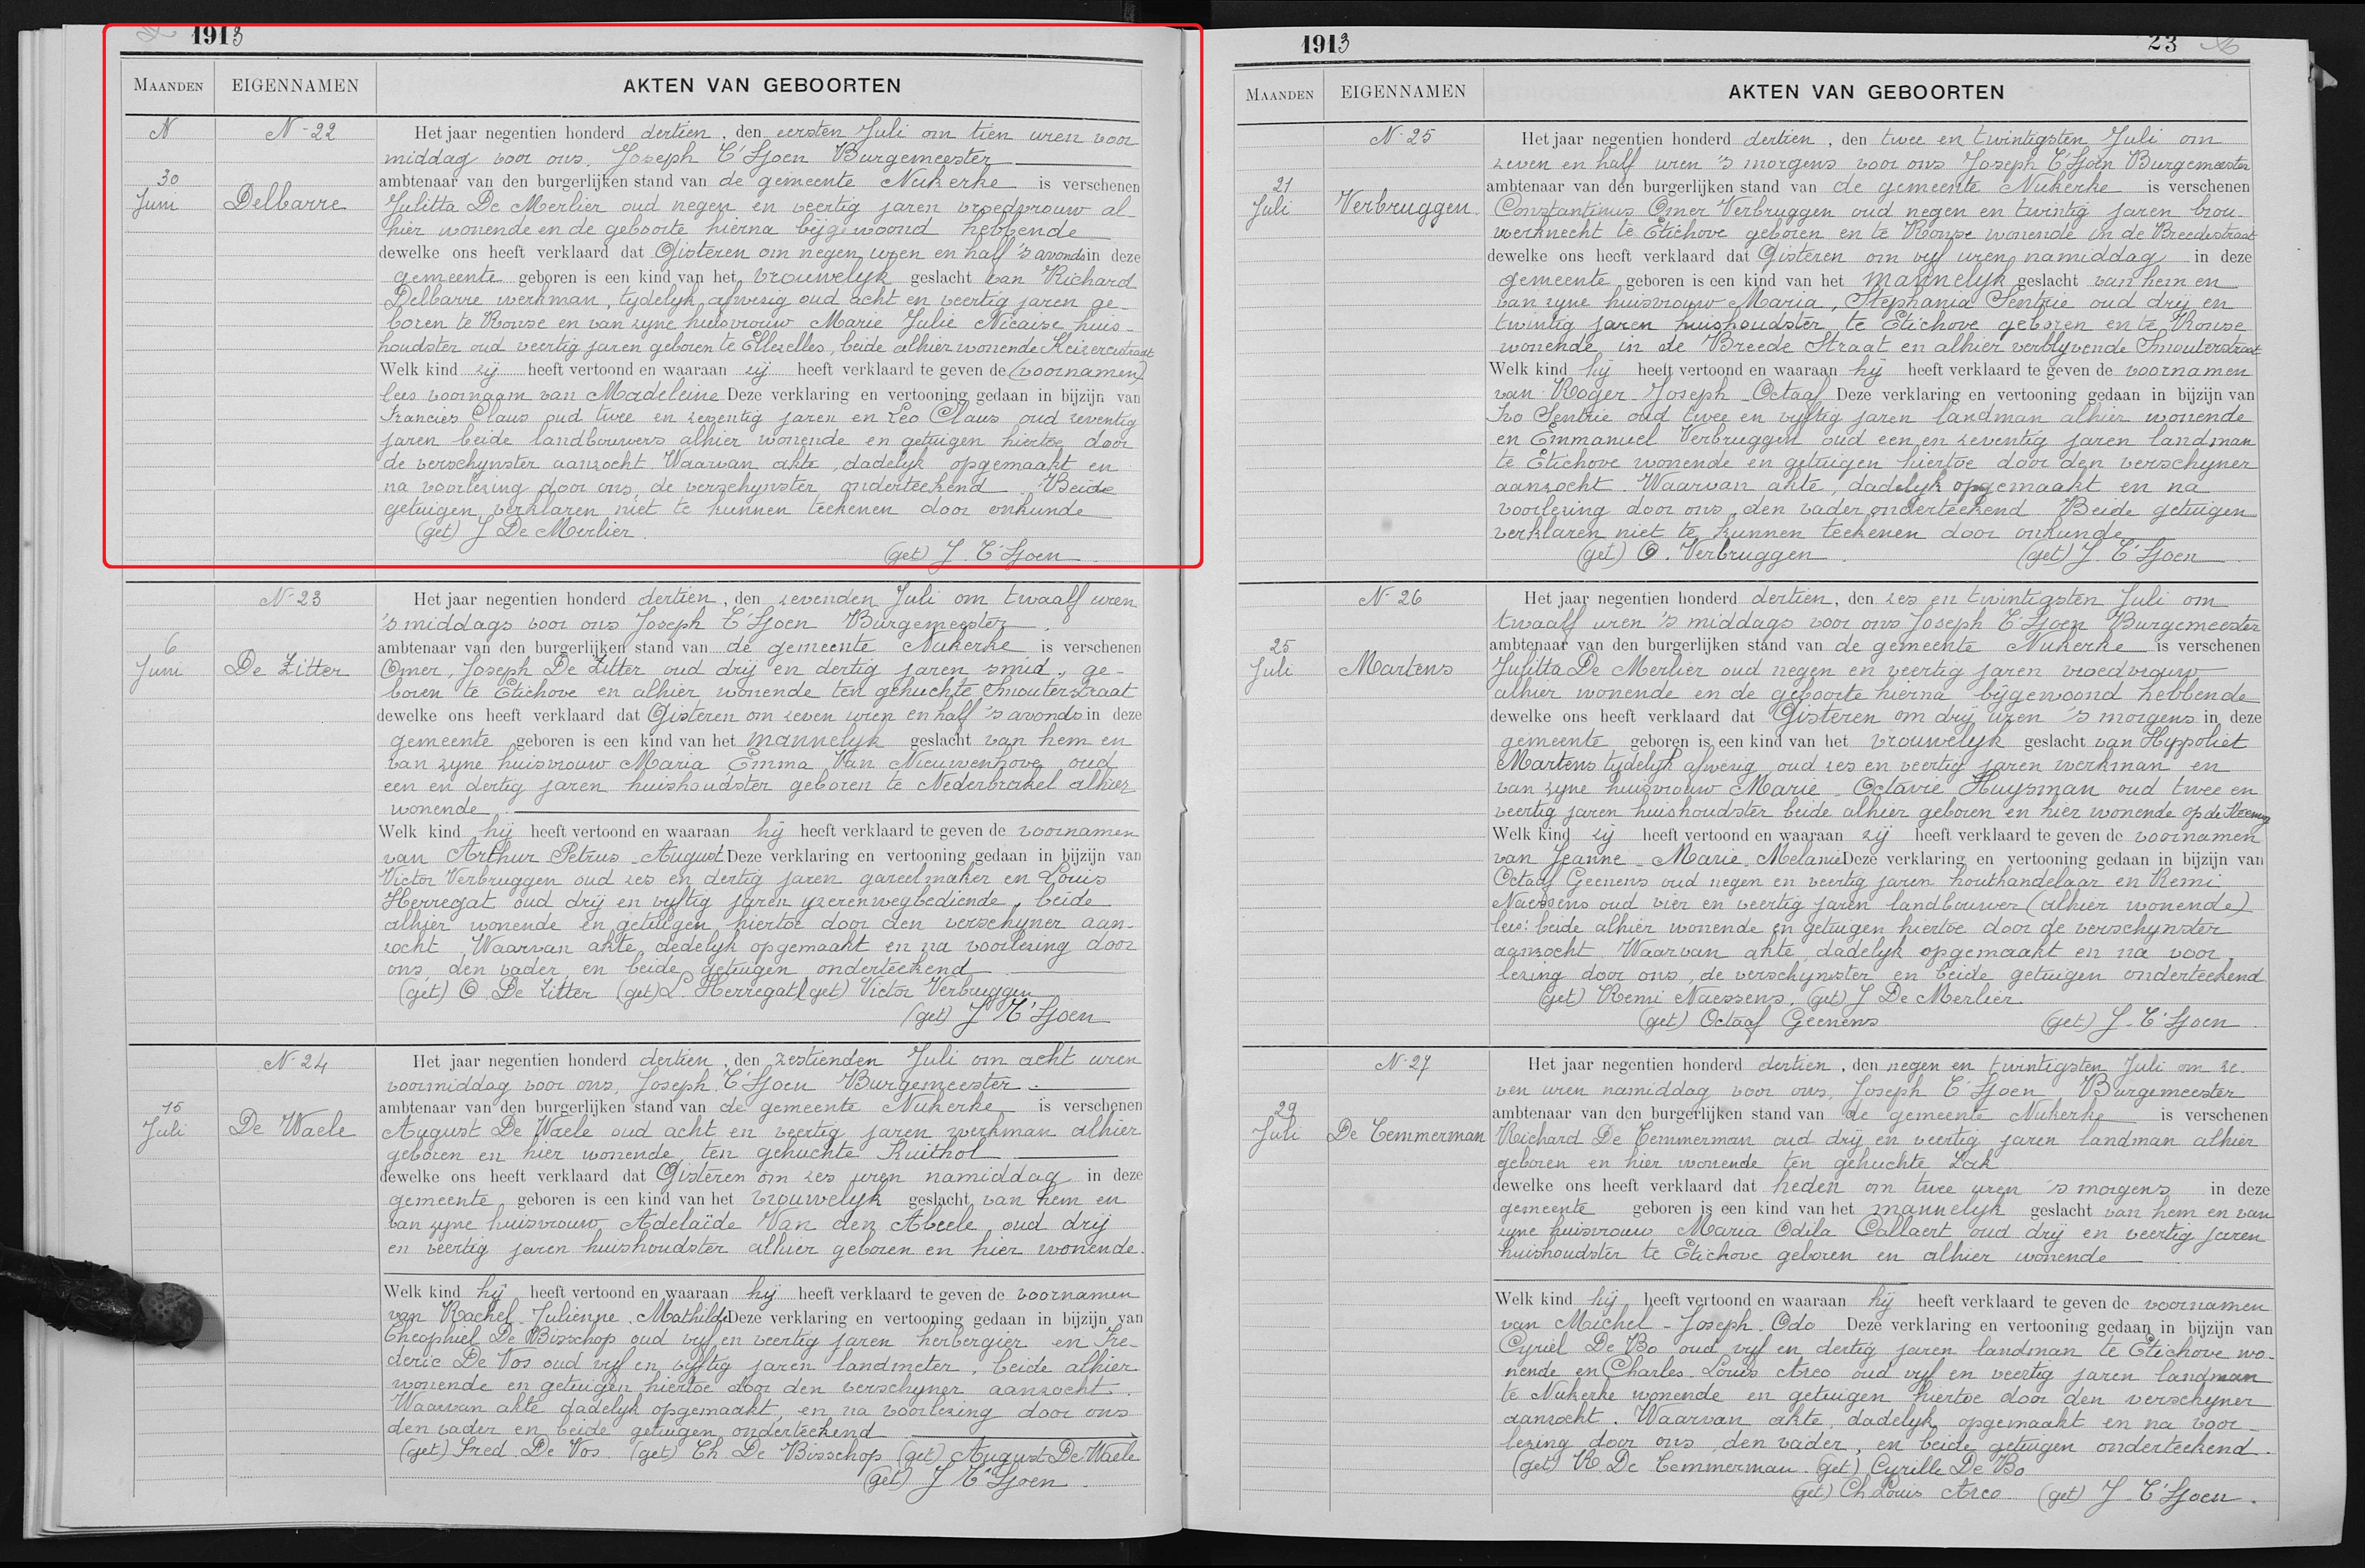 1913
MAANDEN EIGENNAMEN AKTEN VAN GEBOORTEN
N N-22 Het jaar negentien honderd dertien, den eersten Juli om tien uren voor
middag voor ons, Joseph T'Sjoen Burgemeester
30 ambtenaar van den burgerlijken stand van de gemeente Nukerke is verschenen
Juni Delbarre Julitta De Merlier oud negen en veertig jaren vroedvrouw al-
hier wonende en de geboorte hierna bijgewoond hebbende
dewelke ons heeft verklaard dat Gisteren om negen uren en half 's avonds in deze
gemeente geboren is een kind van het vrouwelyk geslacht van Richard
Delbarre werkman, tydelyk afwezig oud acht en veertig jaren ge-
boren te Ronse en van zyne huisvrouw Marie Julie Nicaise huis-
houdster oud veertig jaren geboren te Ellezelles, beide alhier wonende Keizereistraat
Welk kind zij heeft vertoond en waaraan zij heeft verklaard te geven de (voornamen)
lees voornaam van Madeleine Deze verklaring en vertooning gedaan in bijzijn van
Francies Claus oud twee en zeventig jaren en Leo Claus oud zeventig
jaren beide landbouwers alhier wonende en getuigen hiertoe door
de verschynster aanzocht. Waarvan akte, dadelyk opgemaakt en
na voorlezing door ons, de verschynster onderteekend. Beide
getuigen verklaren niet te kunnen teekenen door onkunde
(get) J De Merlier.
(get) J. T'Sjoen
N-23 Het jaar negentien honderd dertien, den zevenden Juli om twaalf uren
's middags voor ons Joseph T'Sjoen Burgemeester.
6 ambtenaar van den burgerlijken stand van de gemeente Nukerke is verschenen
Juni De Zitter Omer, Joseph De Zitter oud drij en dertig jaren smid, ge-
boren te Etichove en alhier wonende ten gehuchte Smouterstraat
dewelke ons heeft verklaard dat Gisteren om zeven uren en half 's avonds in deze
gemeente geboren is een kind van het mannelyk geslacht van hem en
van zyne huisvrouw Maria Emma Van Nieuwenhove oud
een en dertig jaren huishoudster geboren te Nederbrakel alhier
wonende.
Welk kind hij heeft vertoond en waaraan hij heeft verklaard te geven de voornamen
van Arthur-Petrus-August Deze verklaring en vertooning gedaan in bijzijn van
Victor Verbruggen oud zes en dertig jaren gareelmaker en Louis
Herregat oud drij en vyftig jaren yzerenwegbediende, beide
alhier wonende en getuigen hiertoe door den verschyner aan-
zocht. Waarvan akte, dadelyk opgemaakt en na voorlezing door
ons, den vader en beide getuigen onderteekend
(get) O. De Zitter (get) L. Herregat (get) Victor Verbruggen
(get) J T'Sjoen
N-24 Het jaar negentien honderd dertien, den zestienden Juli om acht uren
voormiddag voor ons, Joseph T'Sjoen Burgemeester.
15 ambtenaar van den burgerlijken stand van de gemeente Nukerke is verschenen
Juli De Waele August De Waele oud acht en veertig jaren werkman alhier
geboren en hier wonende ten gehuchte Kuithol
dewelke ons heeft verklaard dat Gisteren om zes uren namiddag in deze
gemeente geboren is een kind van het vrouwelyk geslacht van hem en
van zyne huisvrouw Adelaïde Van den Abeele oud drij
en veertig jaren huishoudster alhier geboren en hier wonende.
Welk kind hij heeft vertoond en waaraan hij heeft verklaard te geven de voornamen
van Rachel-Julienne-Mathilde Deze verklaring en vertooning gedaan in bijzijn van
Theophiel De Bisschop oud vyf en veertig jaren herbergier en Fre-
deric De Vos oud vyf en vyftig jaren landmeter, beide alhier
wonende en getuigen hiertoe door den verschyner aanzocht.
Waarvan akte dadelyk opgemaakt, en na voorlezing door ons
den vader en beide getuigen onderteekend
(get) Fred. De Vos (get) Th De Bisschop (get) August De Waele
(get) J T'Sjoen.
1913 23
MAANDEN EIGENNAMEN AKTEN VAN GEBOORTEN
N-25 Het jaar negentien honderd dertien, den twee en twintigsten Juli om
zeven en half uren 's morgens voor ons Joseph T'Sjoen Burgemeester
21 ambtenaar van den burgerlijken stand van de gemeente Nukerke is verschenen
Juli Verbruggen Constantinus Omer Verbruggen oud negen en twintig jaren brou-
werknecht te Etichove geboren en te Ronse wonende in de Breedestraat
dewelke ons heeft verklaard dat Gisteren om vyf uren namiddag in deze
gemeente geboren is een kind van het mannelyk geslacht van hem en
van zyne huisvrouw Maria, Stephania Sentrie oud drij en
twintig jaren huishoudster te Etichove geboren en te Ronse
wonende in de Breede Straat en alhier verblyvende Smouterstraat
Welk kind hij heeft vertoond en waaraan hij heeft verklaard te geven de voornamen
van Roger-Joseph-Octaaf Deze verklaring en vertooning gedaan in bijzijn van
Ivo Sentrie oud twee en vyftig jaren landman alhier wonende
en Emmanuel Verbruggen oud een en zeventig jaren landman
te Etichove wonende en getuigen hiertoe door den verschyner
aanzocht. Waarvan akte, dadelyk opgemaakt en na
voorlezing door ons, den vader onderteekend Beide getuigen
verklaren niet te kunnen teekenen door onkunde
(get) O. Verbruggen. (get) J. T'Sjoen
N-26 Het jaar negentien honderd dertien, den zes en twintigsten Juli om
twaalf uren 's middags voor ons Joseph T'Sjoen Burgemeester
25 ambtenaar van den burgerlijken stand van de gemeente Nukerke is verschenen
Juli Martens Julitta De Merlier oud negen en veertig jaren vroedvrouw
alhier wonende en de geboorte hierna bijgewoond hebbende
dewelke ons heeft verklaard dat Gisteren om drij uren 's morgens in deze
gemeente geboren is een kind van het vrouwelyk geslacht van Hyppoliet
Martens tydelyk afwezig oud zes en veertig jaren werkman en
van zyne huisvrouw Marie-Octavie Huysman oud twee en
veertig jaren huishoudster beide alhier geboren en hier wonende op de
Welk kind zij heeft vertoond en waaraan zij heeft verklaard te geven de voornamen
van Jeanne-Marie-Melanie Deze verklaring en vertooning gedaan in bijzijn van
Octaaf Geenens oud negen en veertig jaren houthandelaar en Remi
Naessens oud vier en veertig jaren landbouwer (alhier wonende)
lees: beide alhier wonende en getuigen hiertoe door de verschynster
aanzocht. Waarvan akte, dadelyk opgemaakt en na voor
lezing door ons, de verschynster en beide getuigen onderteekend
(get) Remi Naessens. (get) J De Merlier
(get) Octaaf Geenens (get) J. T'Sjoen.
N-27 Het jaar negentien honderd dertien, den negen en twintigsten Juli om ze-
ven uren namiddag voor ons, Joseph T'Sjoen Burgemeester
29 ambtenaar van den burgerlijken stand van de gemeente Nukerke is verschenen
Juli De Temmerman Richard De Temmerman oud drij en veertig jaren landman alhier
geboren en hier wonende ten gehuchte Zak
dewelke ons heeft verklaard dat heden om twee uren 's morgens in deze
gemeente geboren is een kind van het mannelyk geslacht van hem en van
zyne huisvrouw Maria Odila Callaert oud drij en veertig jaren
huishoudster te Etichove geboren en alhier wonende
Welk kind hij heeft vertoond en waaraan hij heeft verklaard te geven de voornamen
van Michel-Joseph-Odo Deze verklaring en vertooning gedaan in bijzijn van
Cyriel De Bo oud vyf en dertig jaren landman te Etichove wo-
nende en Charles Louis Arco oud vyf en veertig jaren landman
te Nukerke wonende en getuigen hiertoe door den verschyner
aanzocht. Waarvan akte, dadelyk opgemaakt en na voor-
lezing door ons, den vader, en beide getuigen onderteekend.
(get) R. De Temmerman. (get) Cyrille De Bo
(get) Ch Louis Arco (get) J. T'Sjoen.